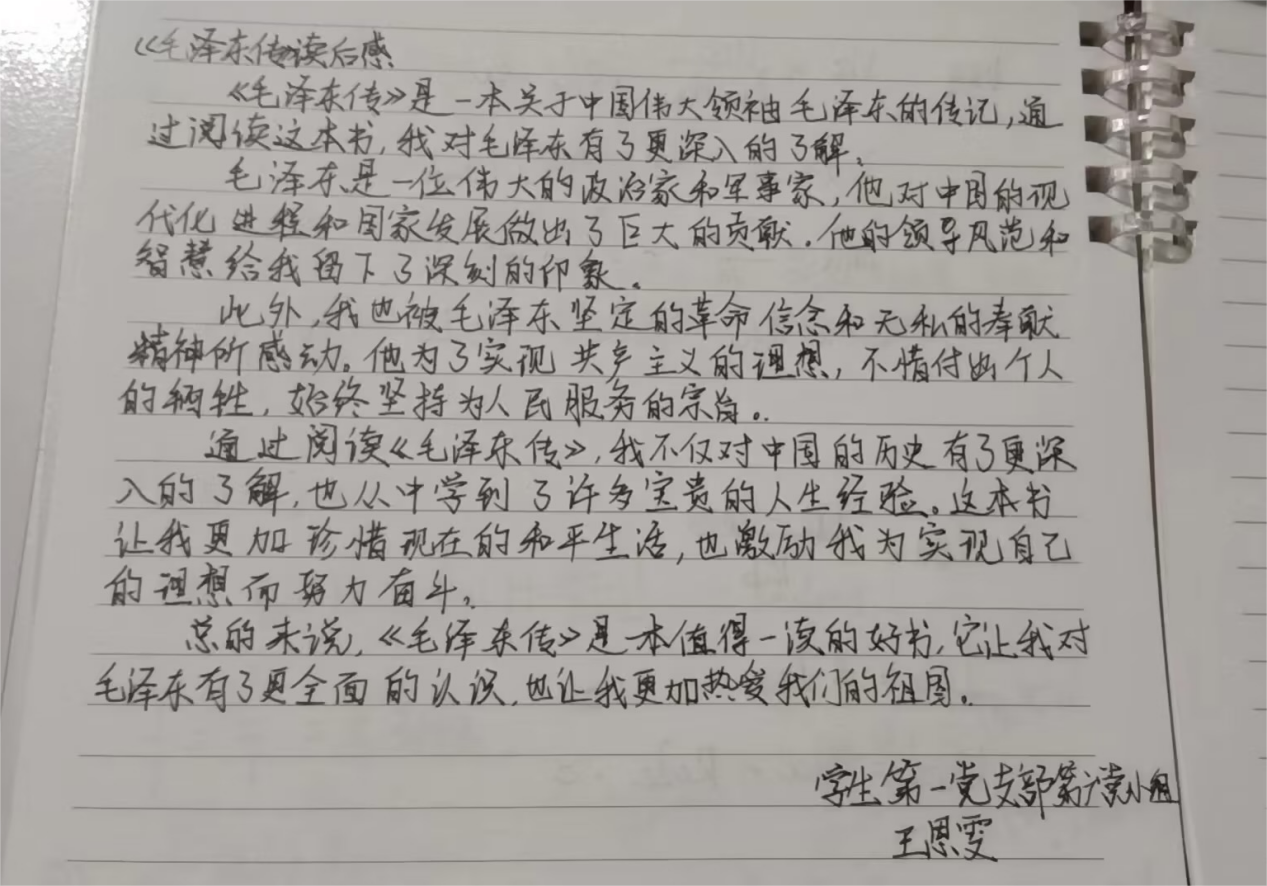 《毛泽东传读后感
《毛泽东传》是一本关于中国伟大领袖毛泽东的传记，通
过阅读这本书，我对毛泽东有了更深入的了解。
毛泽东是一位伟大的政治家和军事家，他对中国的现
代化进程和国家发展做出了巨大的贡献。他的领导风范和
智慧给我留下了深刻的印象。
此外，我也被毛泽东坚定的革命信念和无私的奉献
精神所感动。他为了实现共产主义的理想，不惜付出个人
的牺牲，始终坚持为人民服务的宗旨。
通过阅读《毛泽东传》，我不仅对中国的历史有了更深
入的了解，也从中学到了许多宝贵的人生经验。这本书
让我更加珍惜现在的和平生活，也激励我为实现自己
的理想而努力奋斗。
总的来说，《毛泽东传》是一本值得一读的好书，它让我对
毛泽东有了更全面的认识，也让我更加热爱我们的祖国。
学生第一党支部第党小组
王恩雯